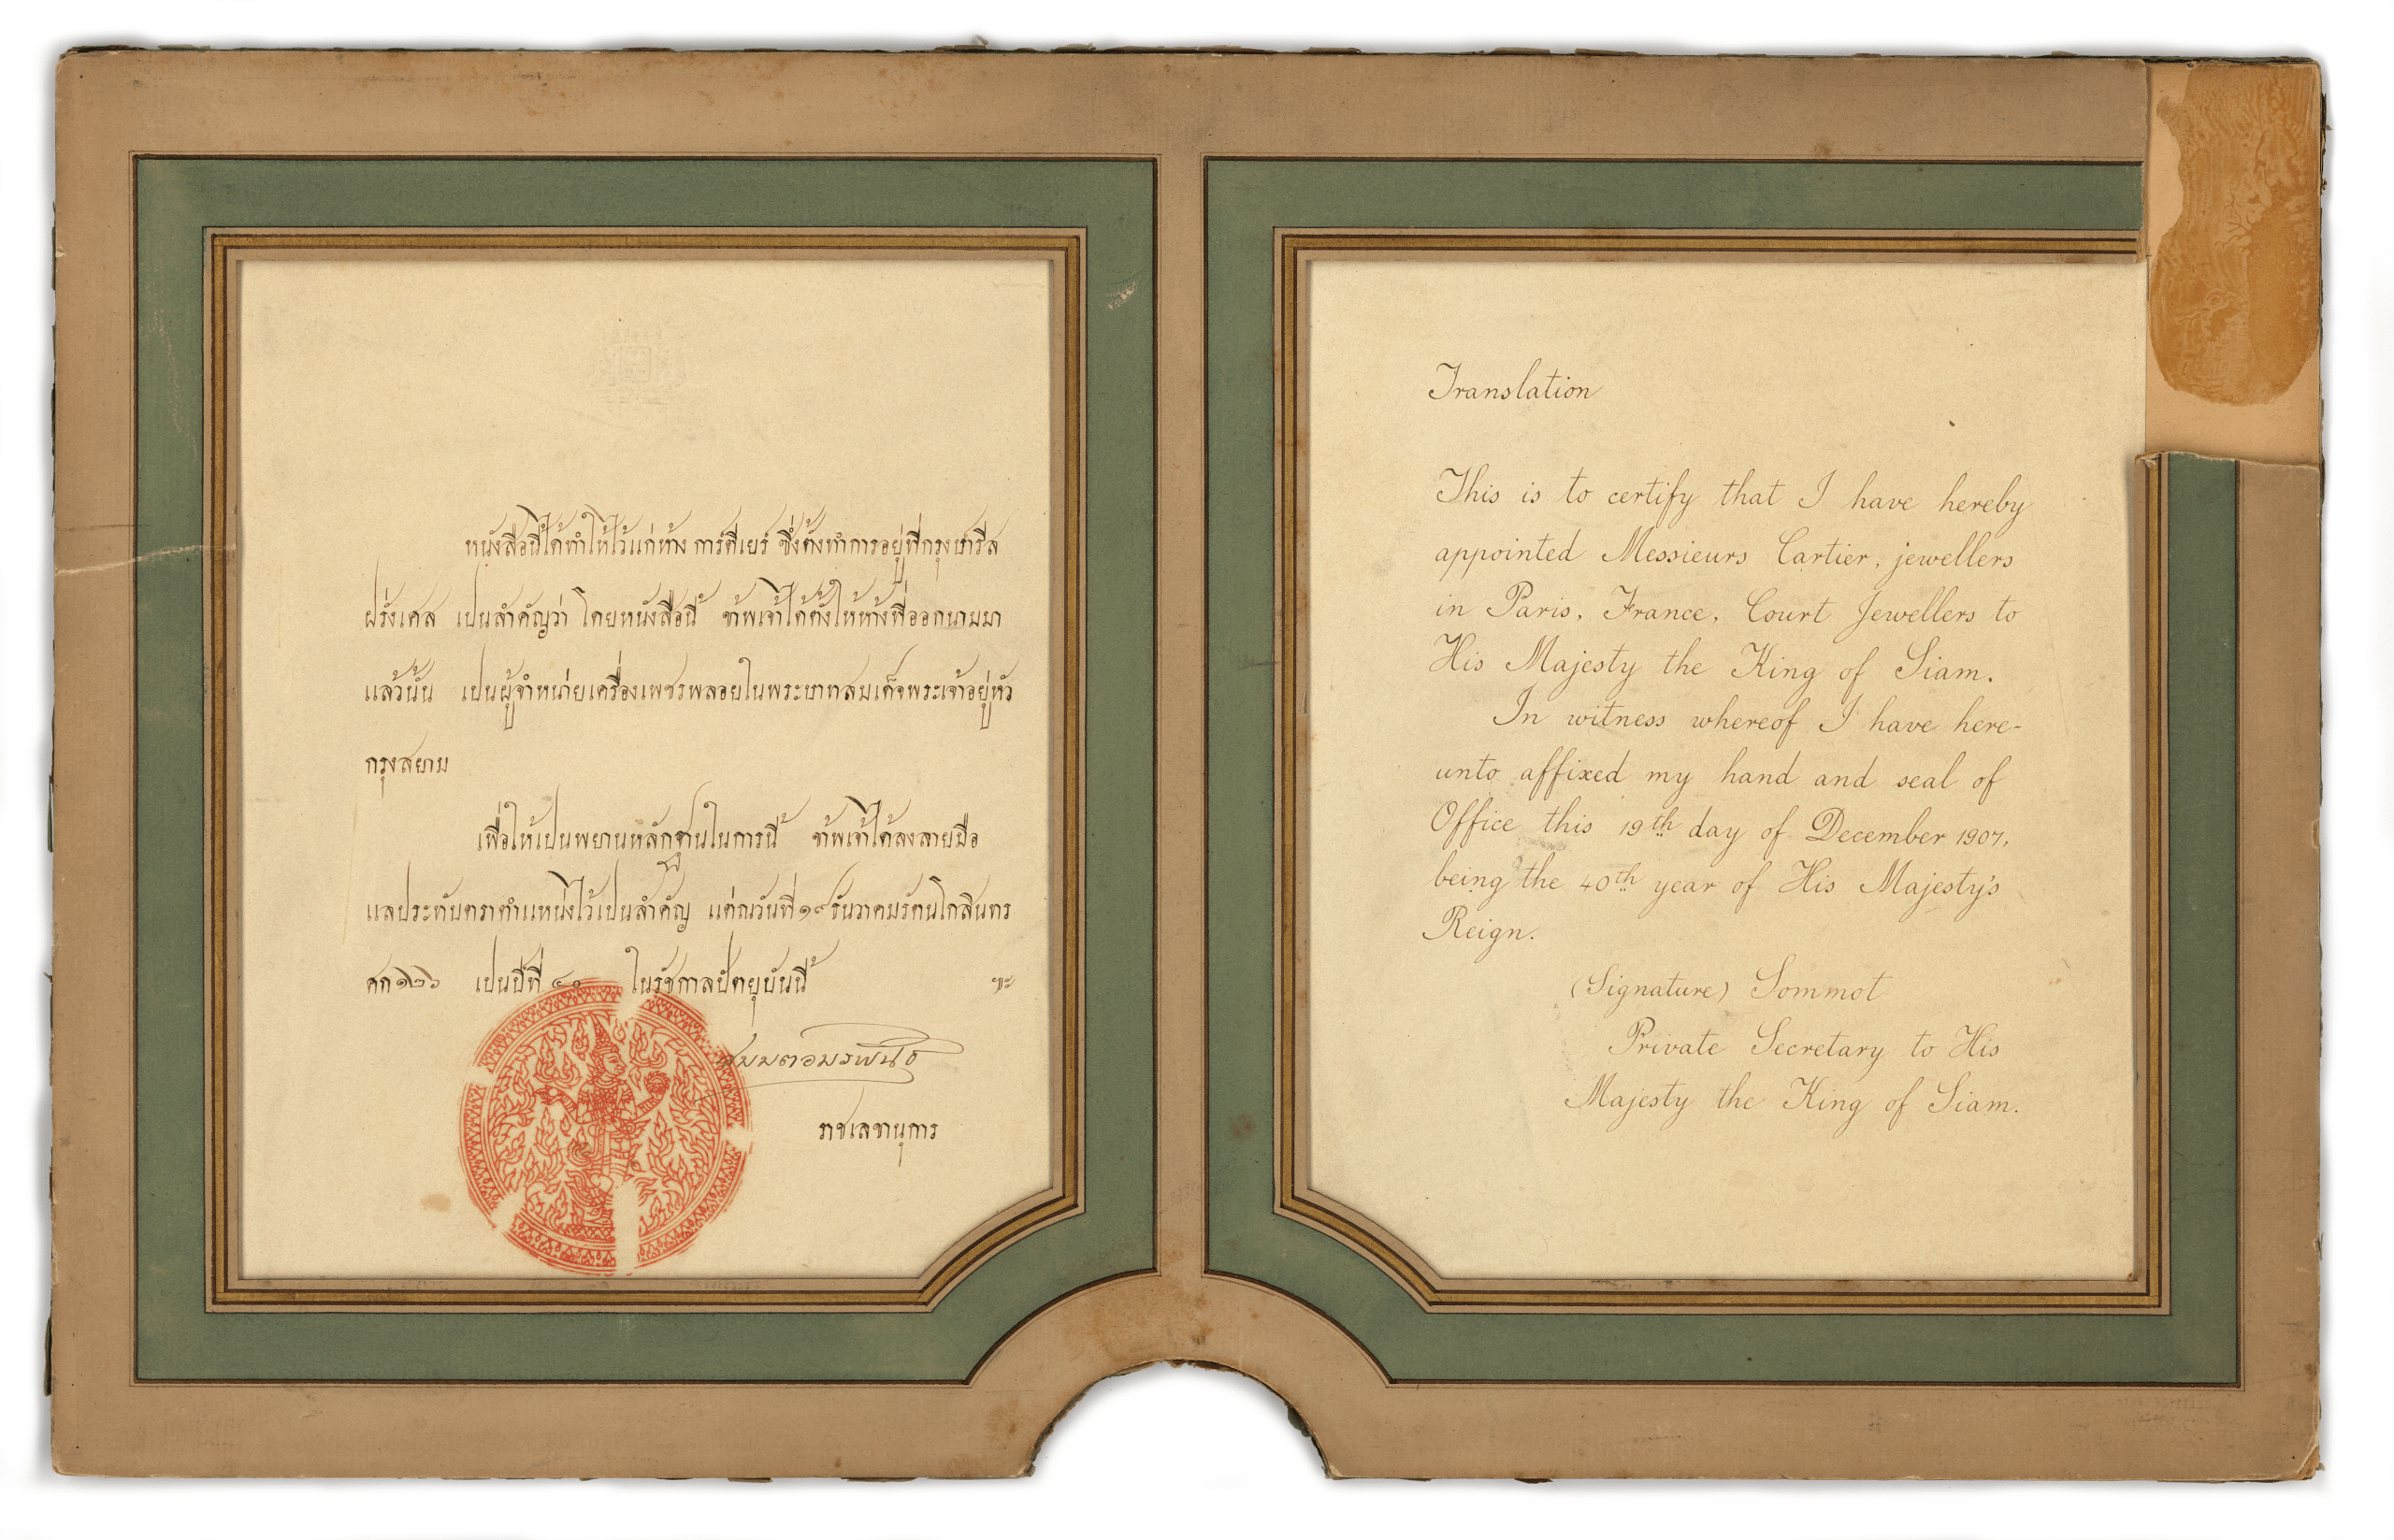 หนังสือนี้ได้ทำให้ไว้แก่ห้าง การ์ตีเยร์ ซึ่งตั้งทำการอยู่ที่กรุงปารีส
ฝรั่งเศส เปนสำคัญว่า โดยหนังสือนี้ ข้าพเจ้าได้ตั้งให้ห้างที่ออกนามมา
แล้วนั้น เปนผู้จำหน่ายเครื่องเพชรพลอยในพระบาทสมเด็จพระเจ้าอยู่หัว
กรุงสยาม
เพื่อให้เปนพยานหลักฐานในการนี้ ข้าพเจ้าได้ลงลายมือ
แลประทับตราตำแหน่งไว้เปนสำคัญ แต่ณวันที่ ๑๙ ธันวาคมรัตนโกสินทร
ศก ๑๒๖ เปนปีที่ ๔๐ ในรัชกาลปัตยุบันนี้ ฯะ
สมมตอมรพันธุ์
ราชเลขานุการ
Translation
This is to certify that I have hereby
appointed Messieurs Cartier, jewellers
in Paris, France, Court Jewellers to
His Majesty the King of Siam.
In witness whereof I have here-
unto affixed my hand and seal of
Office this 19th day of December 1907,
being the 40th year of His Majesty's
Reign.
(Signature) Sommot
Private Secretary to His
Majesty the King of Siam.